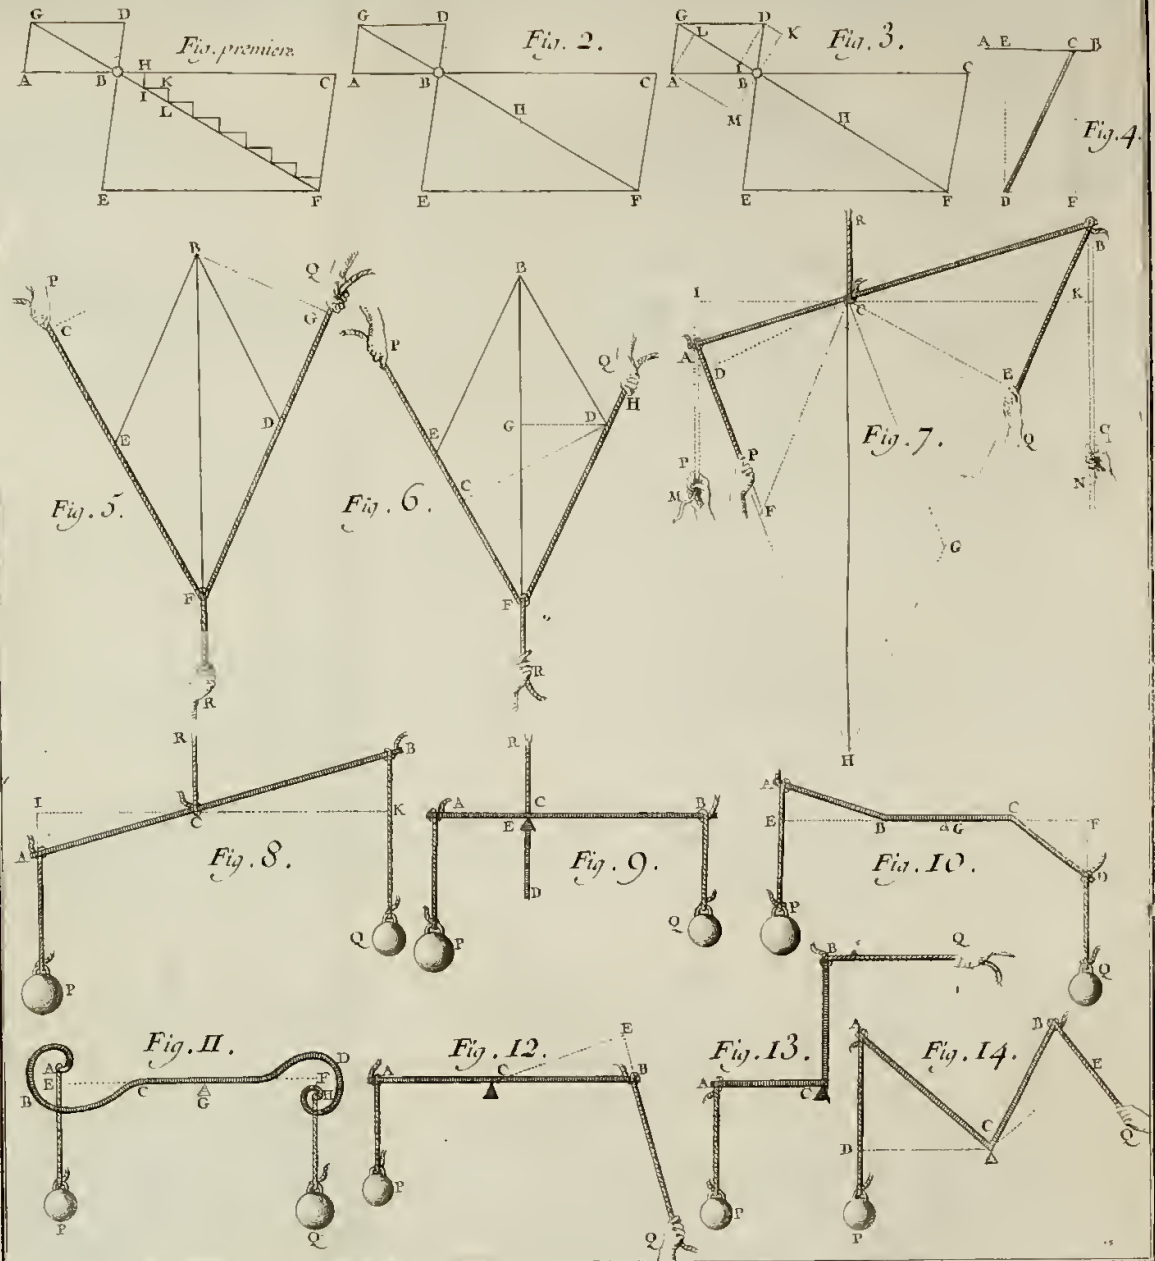 Fig. premiere.
G D
A B H K C
I L
E F
Fig. 2.
G D
A B C
H
E F
Fig. 3.
G L D K
A I B C
M H
E F
Fig. 4.
A E C B
D F
Fig. 5.
B
P Q
C G
E D
F
R
Fig. 6.
B
P Q
E G D H
C
F
R
Fig. 7.
R
B
I C K
A D E
Q
P P
M F N
G
H
Fig. 8.
R B
I C K
A
Q
P
Fig. 9.
R
A C B
E
D
P Q
Fig. 10.
A C
E B G F
D
P Q
Fig. 11.
A D
E C F
B G H
P Q
Fig. 12.
E
A C B
P Q
Fig. 13.
B Q
A C
P
Fig. 14.
A B
E
C
D Q
P